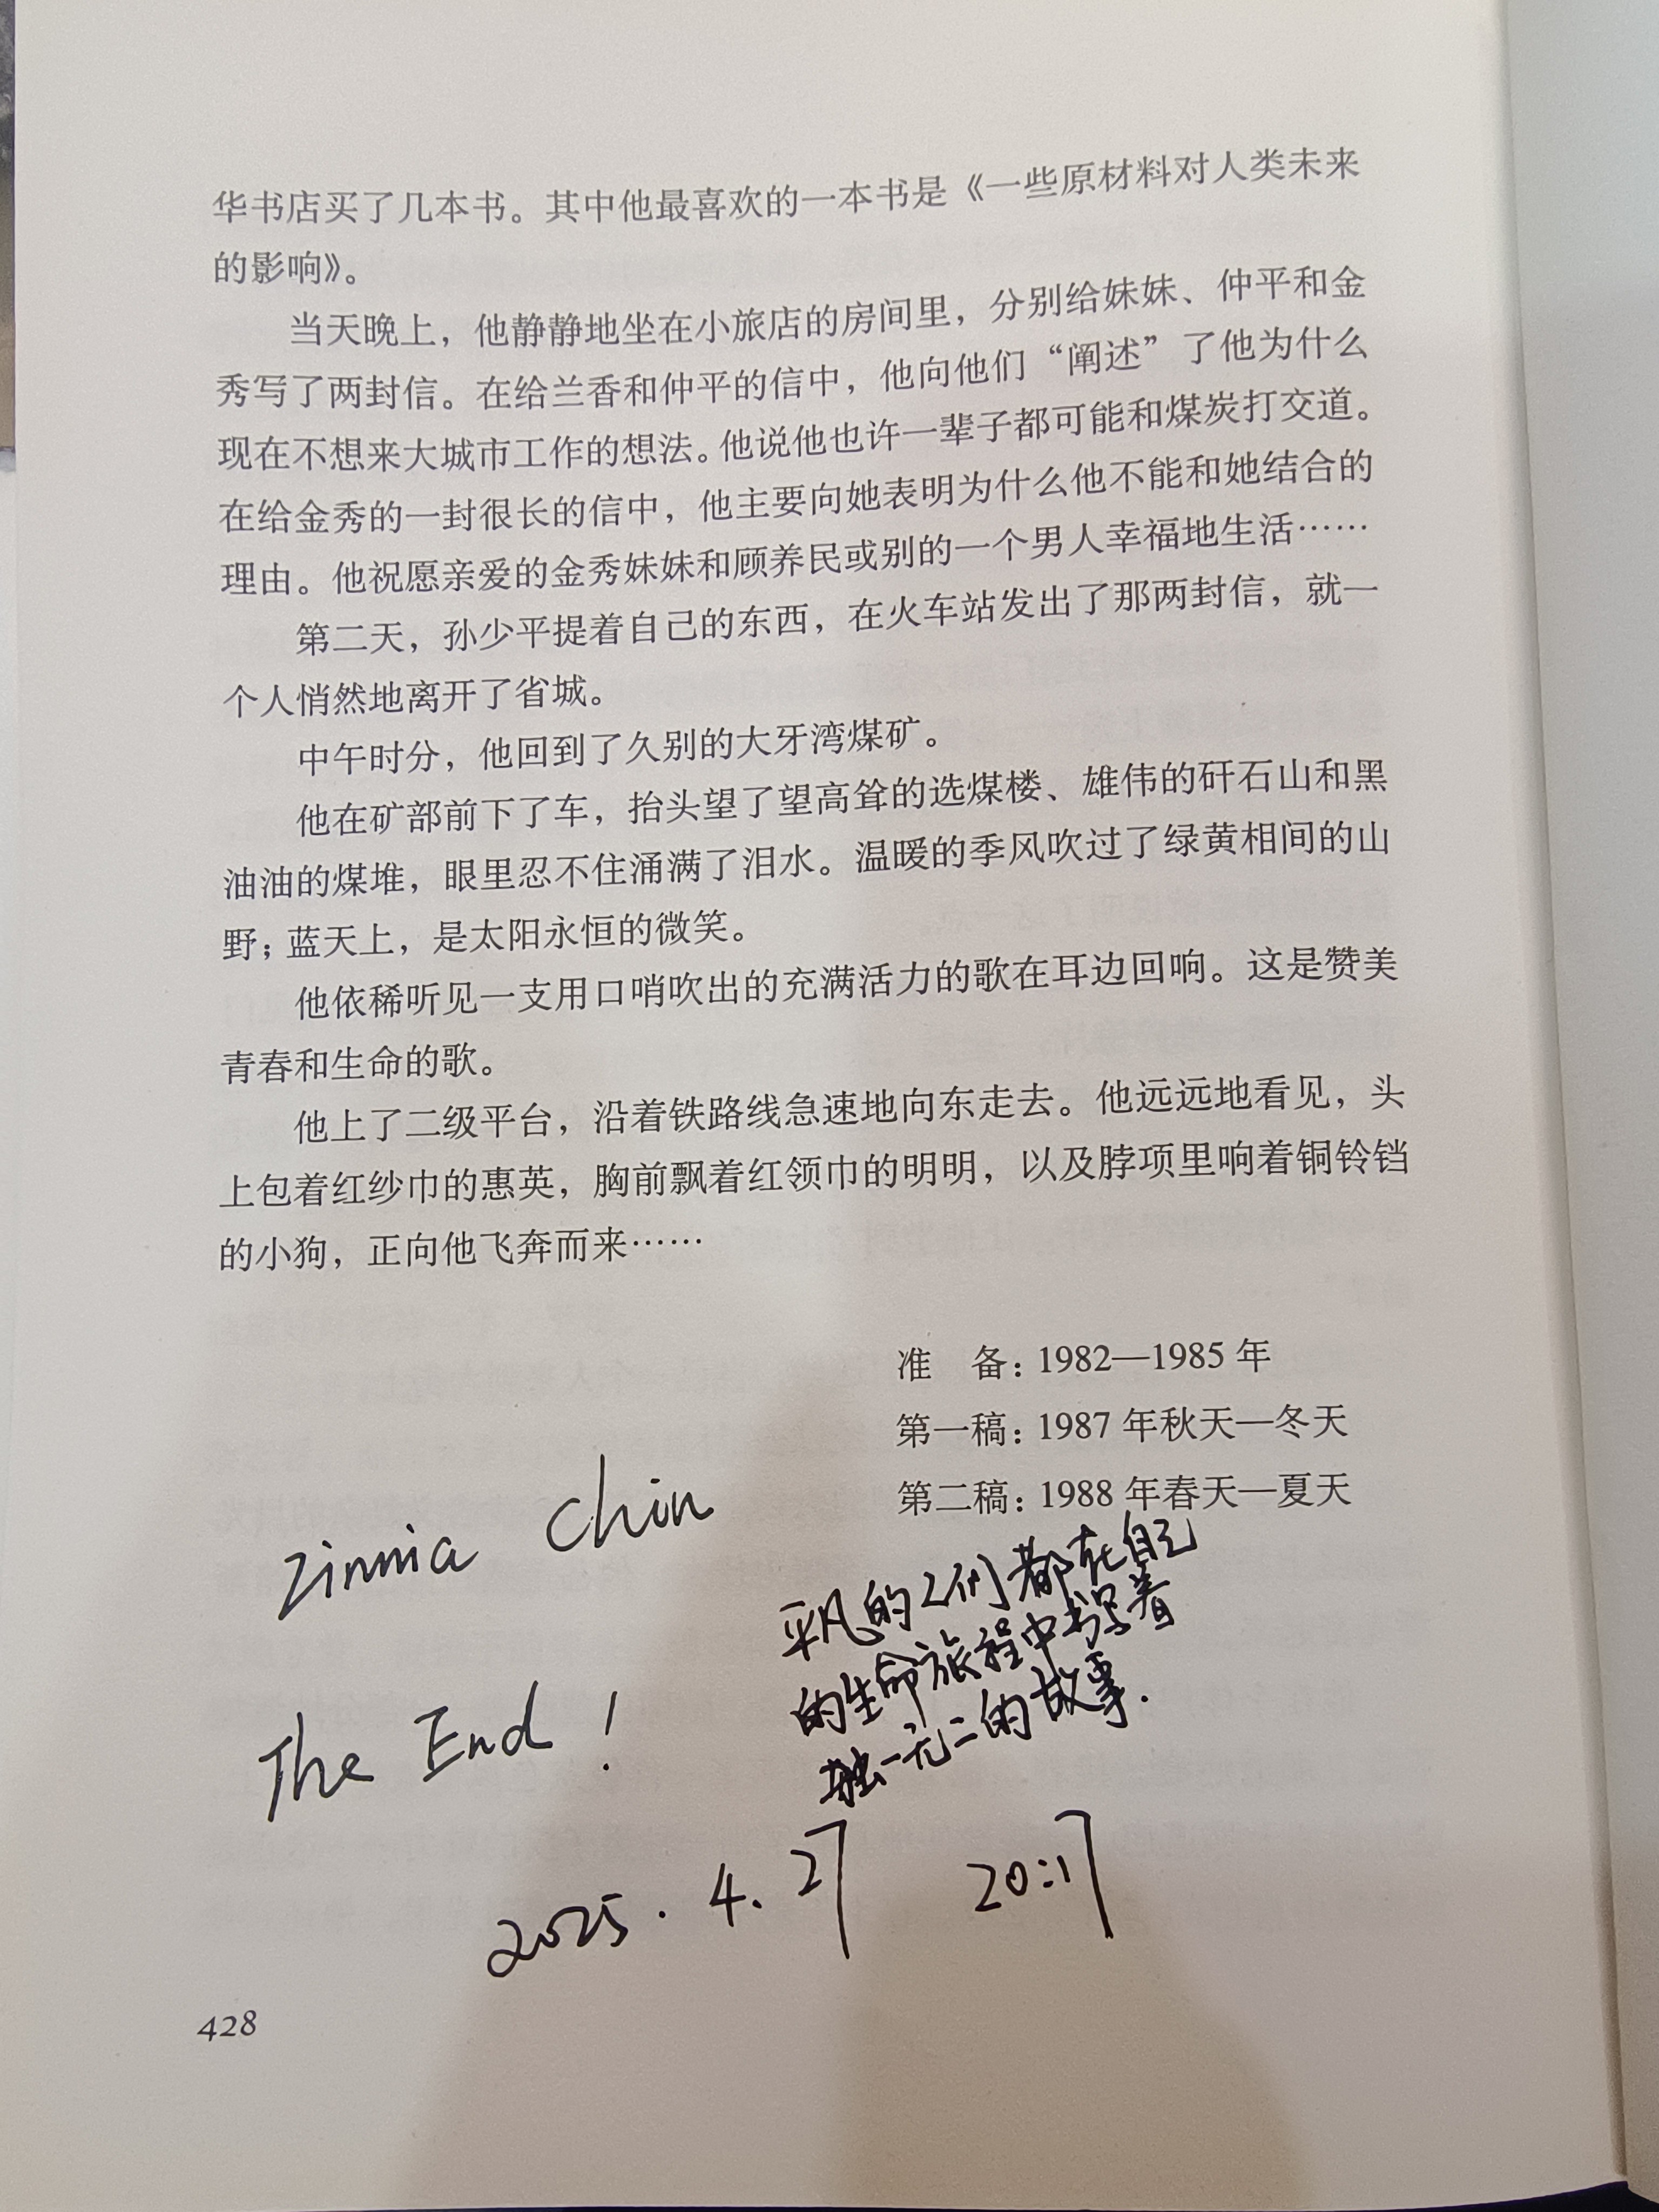 华书店买了几本书。其中他最喜欢的一本书是《一些原材料对人类未来
的影响》。
当天晚上，他静静地坐在小旅店的房间里，分别给妹妹、仲平和金
秀写了两封信。在给兰香和仲平的信中，他向他们“阐述”了他为什么
现在不想来大城市工作的想法。他说他也许一辈子都可能和煤炭打交道。
在给金秀的一封很长的信中，他主要向她表明为什么他不能和她结合的
理由。他祝愿亲爱的金秀妹妹和顾养民或别的一个男人幸福地生活……
第二天，孙少平提着自己的东西，在火车站发出了那两封信，就一
个人悄然地离开了省城。
中午时分，他回到了久别的大牙湾煤矿。
他在矿部前下了车，抬头望了望高耸的选煤楼、雄伟的矸石山和黑
油油的煤堆，眼里忍不住涌满了泪水。温暖的季风吹过了绿黄相间的山
野；蓝天上，是太阳永恒的微笑。
他依稀听见一支用口哨吹出的充满活力的歌在耳边回响。这是赞美
青春和生命的歌。
他上了二级平台，沿着铁路线急速地向东走去。他远远地看见，头
上包着红纱巾的惠英，胸前飘着红领巾的明明，以及脖项里响着铜铃铛
的小狗，正向他飞奔而来……
准　备：1982—1985 年
第一稿：1987 年秋天—冬天
第二稿：1988 年春天—夏天
Zinnia Chin
平凡的人们都在自己
的生命旅程中书写着
独一无二的故事.
The End !
2025.4.27 20:17
428